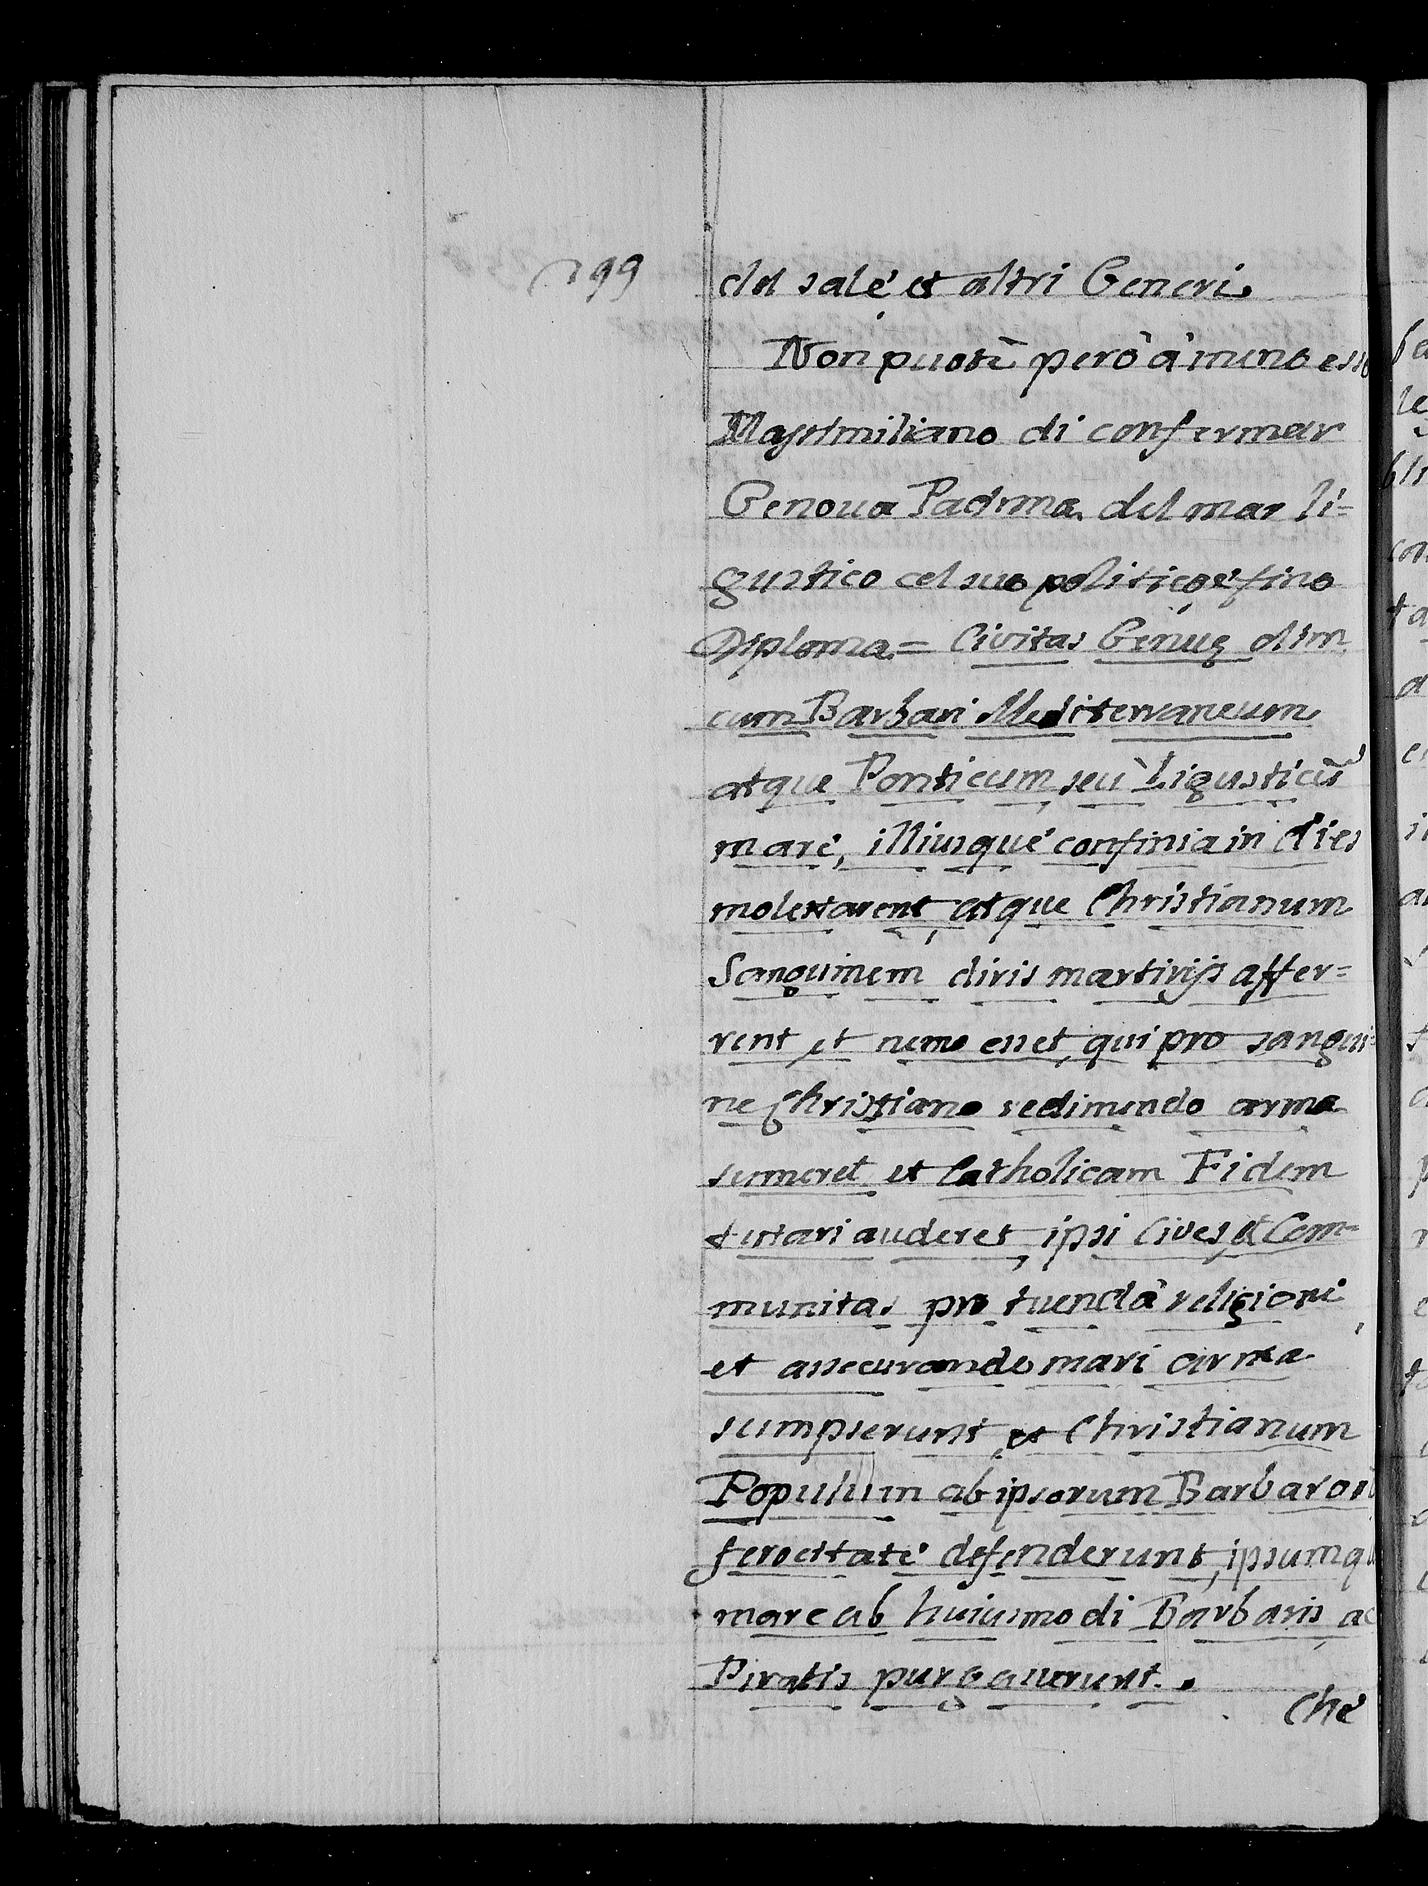 199
del sale et altri Generi.
Non puotè però à meno esso
Massimiliano di confermar
Genoua Padrona del mar li=
gustico cel suo politico e fino
Diploma = Civitas Genuę olim
cum Barbari Mediterraneum
atque Ponticum, seù Ligusticũ
mare, illiusque confinia in dies
molestarent, atque Christianum
Sanguinem diris martirijs affer=
rent, et nemo esset, qui pro sangui=
ne Christiano redimendo arma
sumeret, et Catholicam Fidem
tutari auderet, ipsi Cives, et Com=
munitas pro tuendà religione,
et assecurando mari arma
sumpserunt, et Christianum
Populum ab ipsorum Barbaror
ferocitate defenderunt, ipsumq
mare ab huiusmodi Barbaris, ac
Piratis purgauerunt.
Che